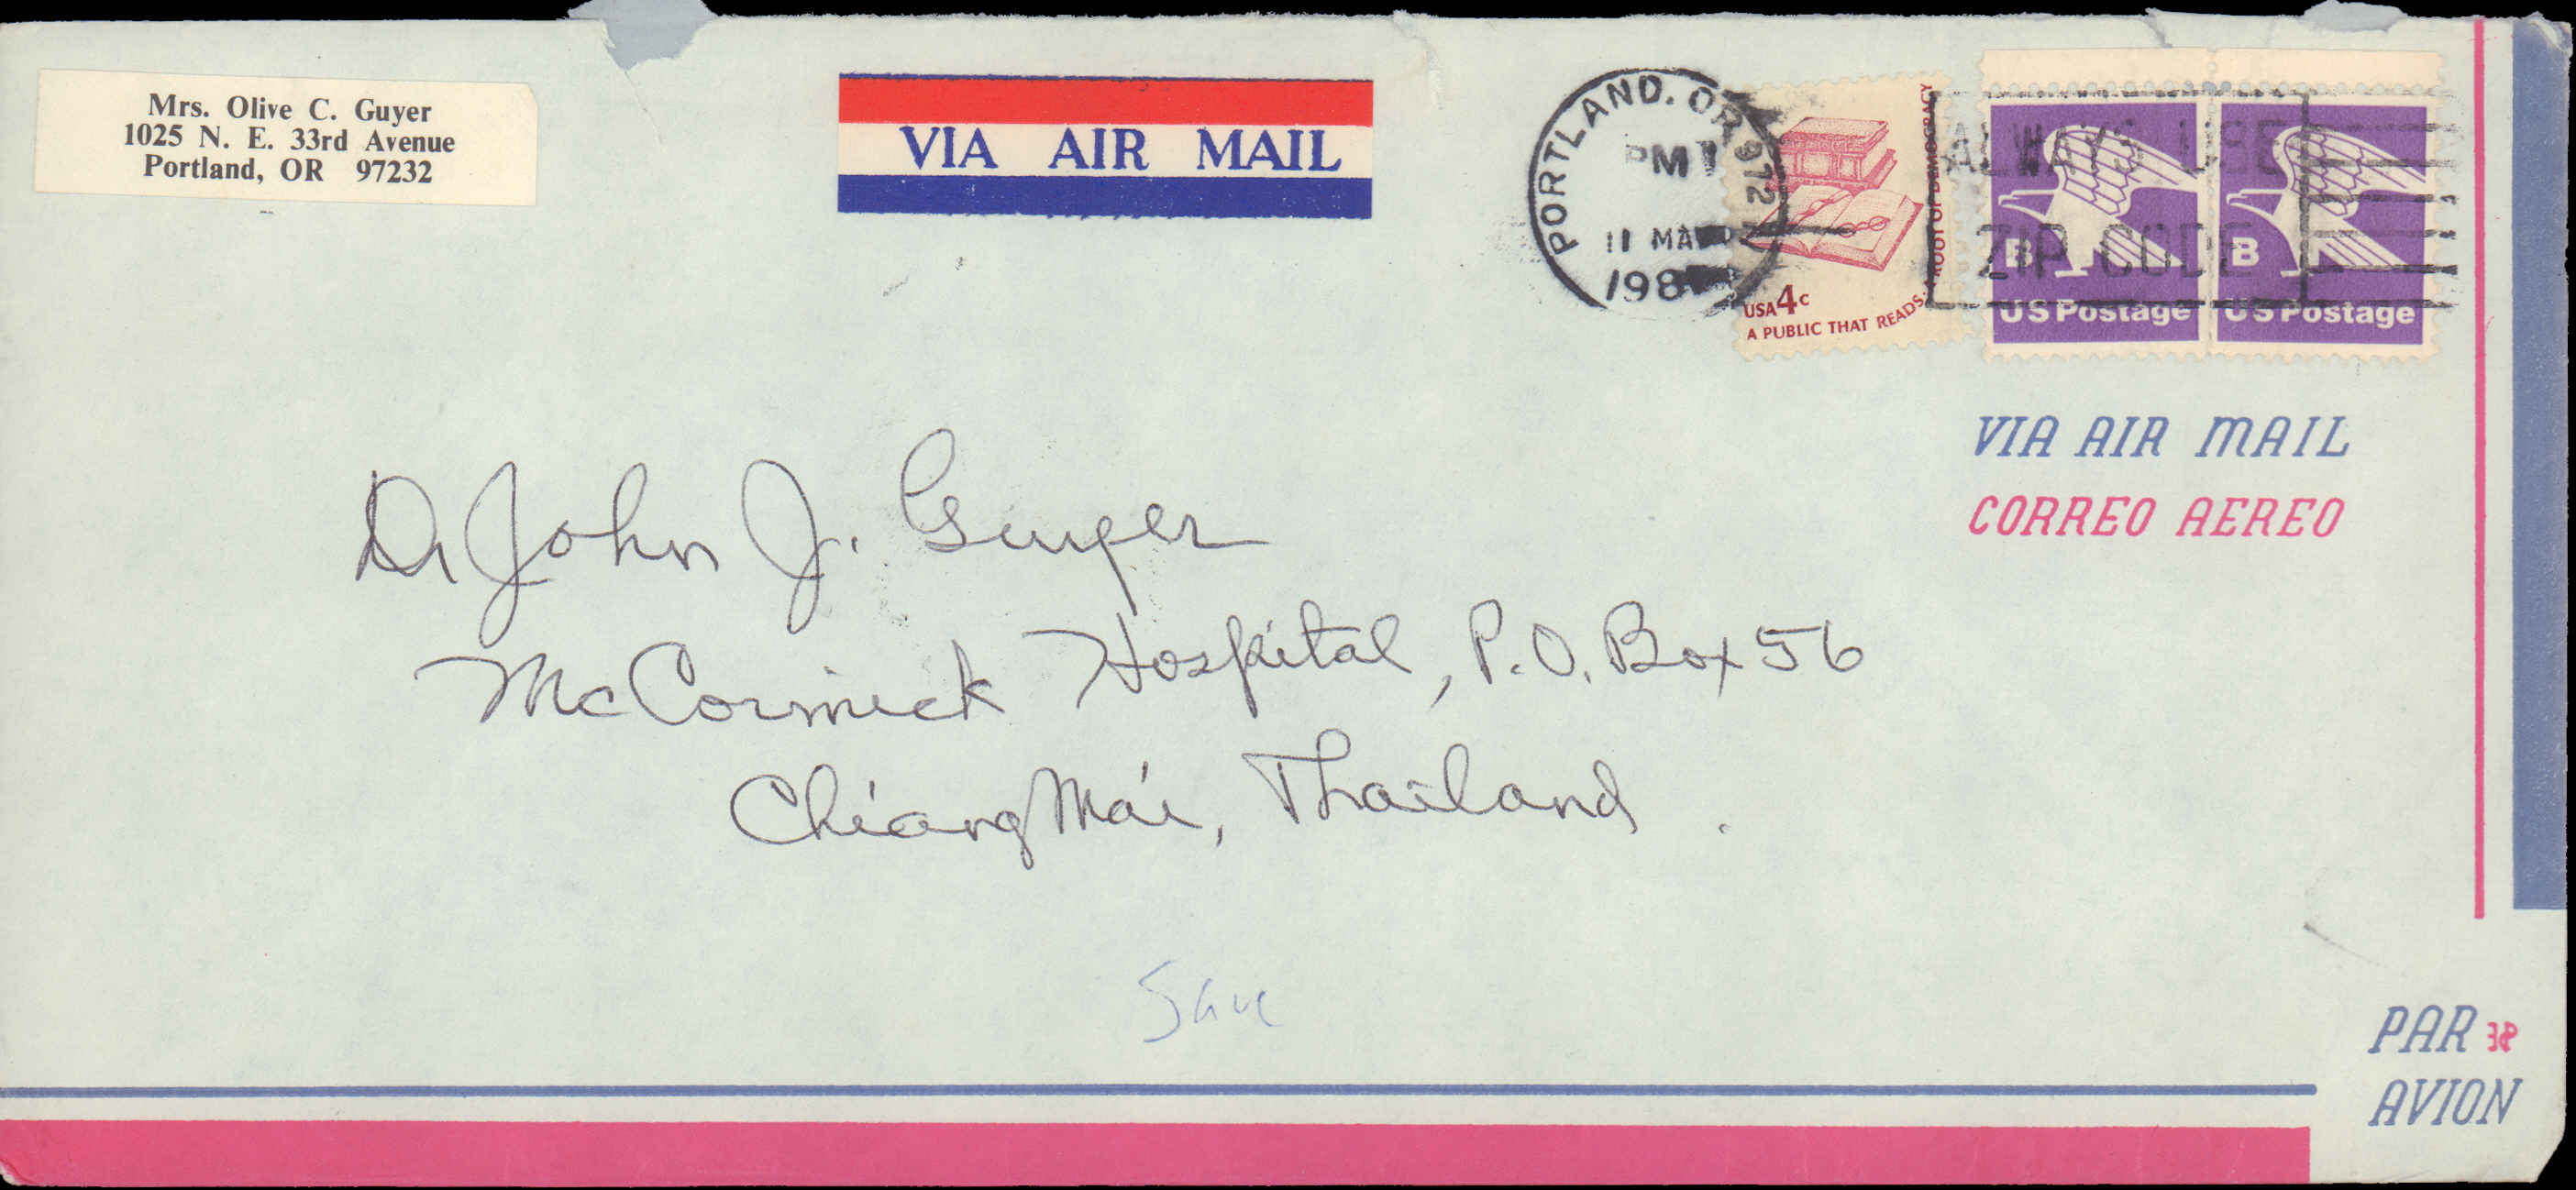 Mrs. Olive C. Guyer
1025 N. E. 33rd Avenue
Portland, OR 97232
VIA AIR MAIL
PORTLAND, OR 972
PM
11 MA
198
USA 4c
A PUBLIC THAT READS: A ROOT OF DEMOCRACY
ALWAYS USE
ZIP CODE
B
US Postage
B
US Postage
VIA AIR MAIL
CORREO AEREO
Dr John J. Guyer
McCormick Hospital, P.O. Box 56
Chiang Mai, Thailand.
Save
PAR
AVION